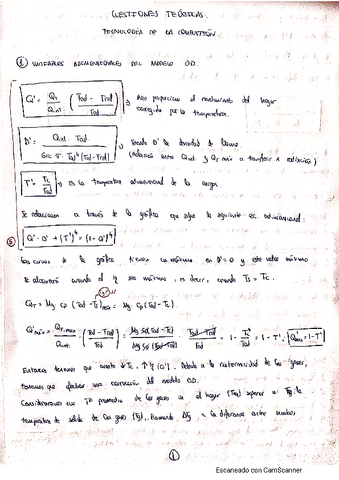 CUESTIONES TEÓRICAS.
TECNOLOGÍA DE LA COMBUSTIÓN
① VARIABLES ADIMENSIONALES DEL MODELO OD.
Q' = Qr / Qent · (Tad - Tref / Tad) → Nos proporciona el rendimiento del hogar
corregido por la temperatura.
D' = Qent · Tad / Tad⁴ (Tad-Tref) → Siendo D' la densidad de
(relación entre Qent y Qr máx a transferir x radiación)
T' = Tc / Tad → Es la temperatura adimensional de la carga.
Se relacionan a través de la gráfica que sigue la siguiente ec. adimensional:
Q' · D' + (T')⁴ = (1 - Q')⁴
Las curvas de la gráfica tienen un máximo en D' = 0 y este valor máximo
se alcanzará cuando el η sea máximo, es decir, cuando Ts = Tc.
Qr = Mg Cp (Tad - Ts) = Mg Cp (Tad - Tc).
Q'máx = Qr,máx / Qent · (Tad - Tref / Tad) = Mg Cp (Tad - Tc) / Mg Cp (Tad - Tref) · Tad - Tref / Tad = 1 - Tc / Tad = 1 - T' ; Q'máx = 1 - T'
Entonces tenemos que cuanto ↓ Tc, ↑ η (Q'). Debido a la de los gases,
tenemos que efectuar una corrección del modelo OD.
Consideraremos que Tª promedio de los gases en el hogar (Tg) superior a la
temperatura de salida de los gases (Ts), llamando a la diferencia entre ambas
①
Escaneado con CamScanner